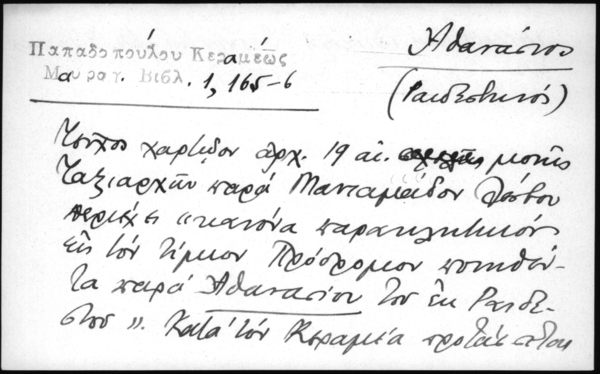 Παπαδοπούλου Κεραμέως
Μαυραγ. Βιβλ. 1, 165-6
Ἀθανάσιος
(Ραιδεστινός)
Τεῦχος χαρτῷον ἀρχ. 19 αἰ. μονῆς
Ταξιαρχῶν παρὰ Μανταμάδον Λέσβου
περιέχει «κανόνα παρακλητικὸν
εἰς τὸν τίμιον Πρόδρομον ποιηθέν-
τα παρὰ Ἀθανασίου τοῦ ἐκ Ραιδε-
στοῦ». Κατὰ τὸν Κεραμέα προτάσσεται